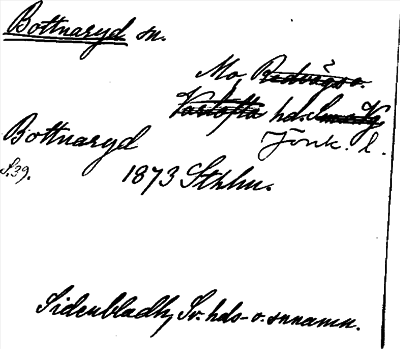 Bottnaryd sn.
Mo, Redvägs o.
Vartofta hd
Jönk. l.
Bottnaryd
S. 39.
1873 Sthlm.
Sidenbladh, Sv. hds- o. snnamn.